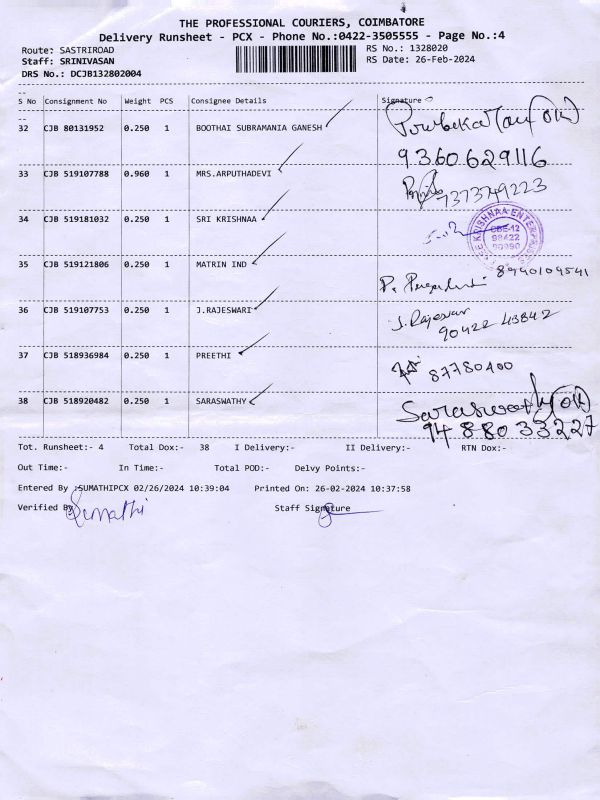 THE PROFESSIONAL COURIERS, COIMBATORE
Delivery Runsheet - PCX - Phone No.:0422-3505555 - Page No.:4
Route: SASTRIROAD RS No.: 1328020
Staff: SRINIVASAN RS Date: 26-Feb-2024
DRS No.: DCJB132802004
S No Consignment No Weight PCS Consignee Details Signature
32 CJB 80131952 0.250 1 BOOTHAI SUBRAMANIA GANESH
9360629116
33 CJB 519107788 0.960 1 MRS.ARPUTHADEVI 7373749223
34 CJB 519181032 0.250 1 SRI KRISHNAA
KRISHNAA ENTERPRISES
CBE-12
98422
35 CJB 519121806 0.250 1 MATRIN IND 8940109541
36 CJB 519107753 0.250 1 J.RAJESWARI J. Rajeswari
90422 43842
37 CJB 518936984 0.250 1 PREETHI 87780400
38 CJB 518920482 0.250 1 SARASWATHY Saraswathy (OK)
94 880 33227
Tot. Runsheet:- 4 Total Dox:- 38 I Delivery:- II Delivery:- RTN Dox:-
Out Time:- In Time:- Total POD:- Delvy Points:-
Entered By :SUMATHIPCX 02/26/2024 10:39:04 Printed On: 26-02-2024 10:37:58
Verified By Sumathi Staff Signature